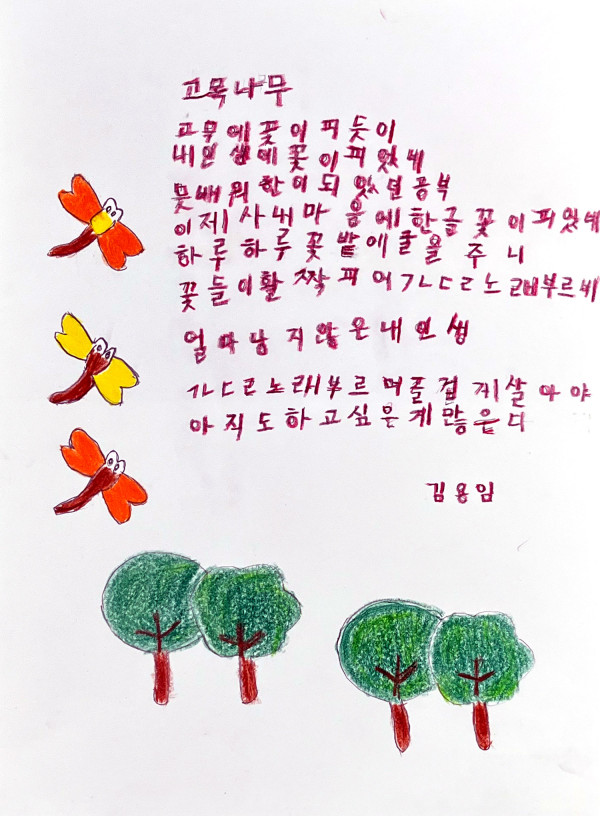 고목나무
고목에꽃이피듯이
내인생에꽃이피었네
못배워한이되었던공부
이제사내마음에한글꽃이피었네
하루하루꽃밭에물을주니
꽃들이활짝피어ㄱㄴㄷㄹ노래부르네
얼마남지않은내인생
ㄱㄴㄷㄹ노래부르며즐겁게살아야
아직도하고싶은게많은다
김용임